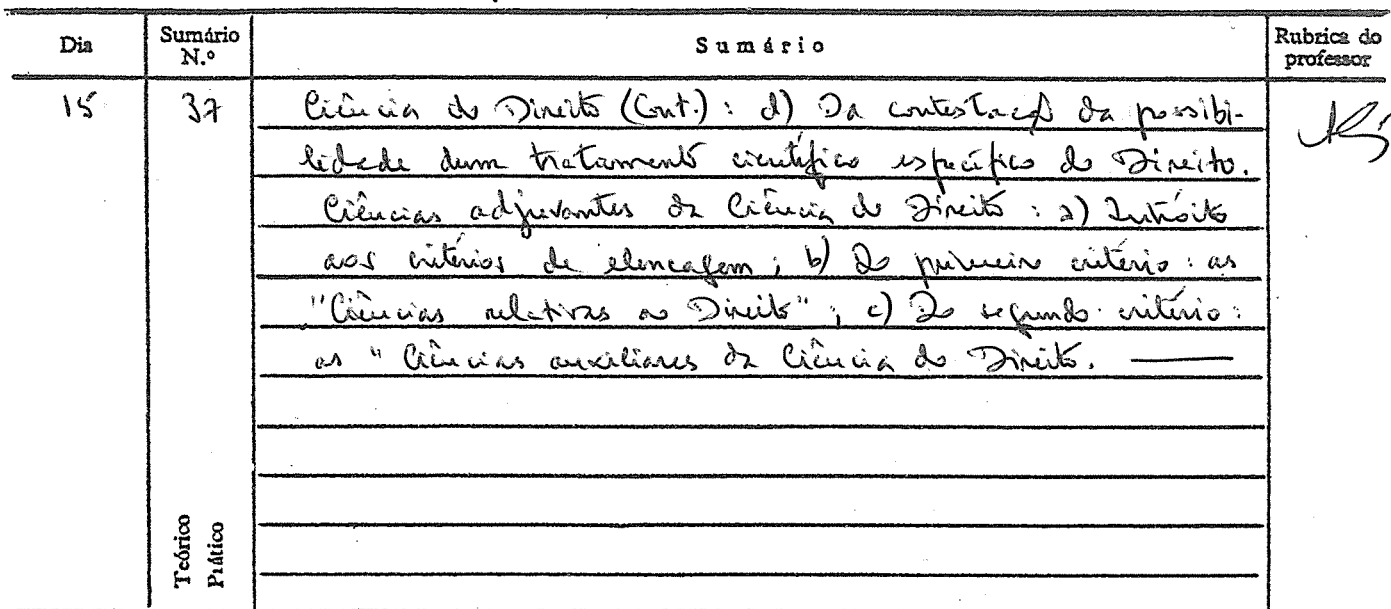 Dia Sumário N.º Sumário Rubrica do professor
15 37 Ciência do Direito (Cont.): d) Da contestação da possibi-
lidade dum tratamento científico específico do Direito.
Ciências adjuvantes da Ciência do Direito: a) Intróito
aos critérios de elencagem; b) Do primeiro critério: as
"Ciências relativas ao Direito"; c) Do segundo critério:
as "Ciências auxiliares da Ciência do Direito.
Teórico
Prático